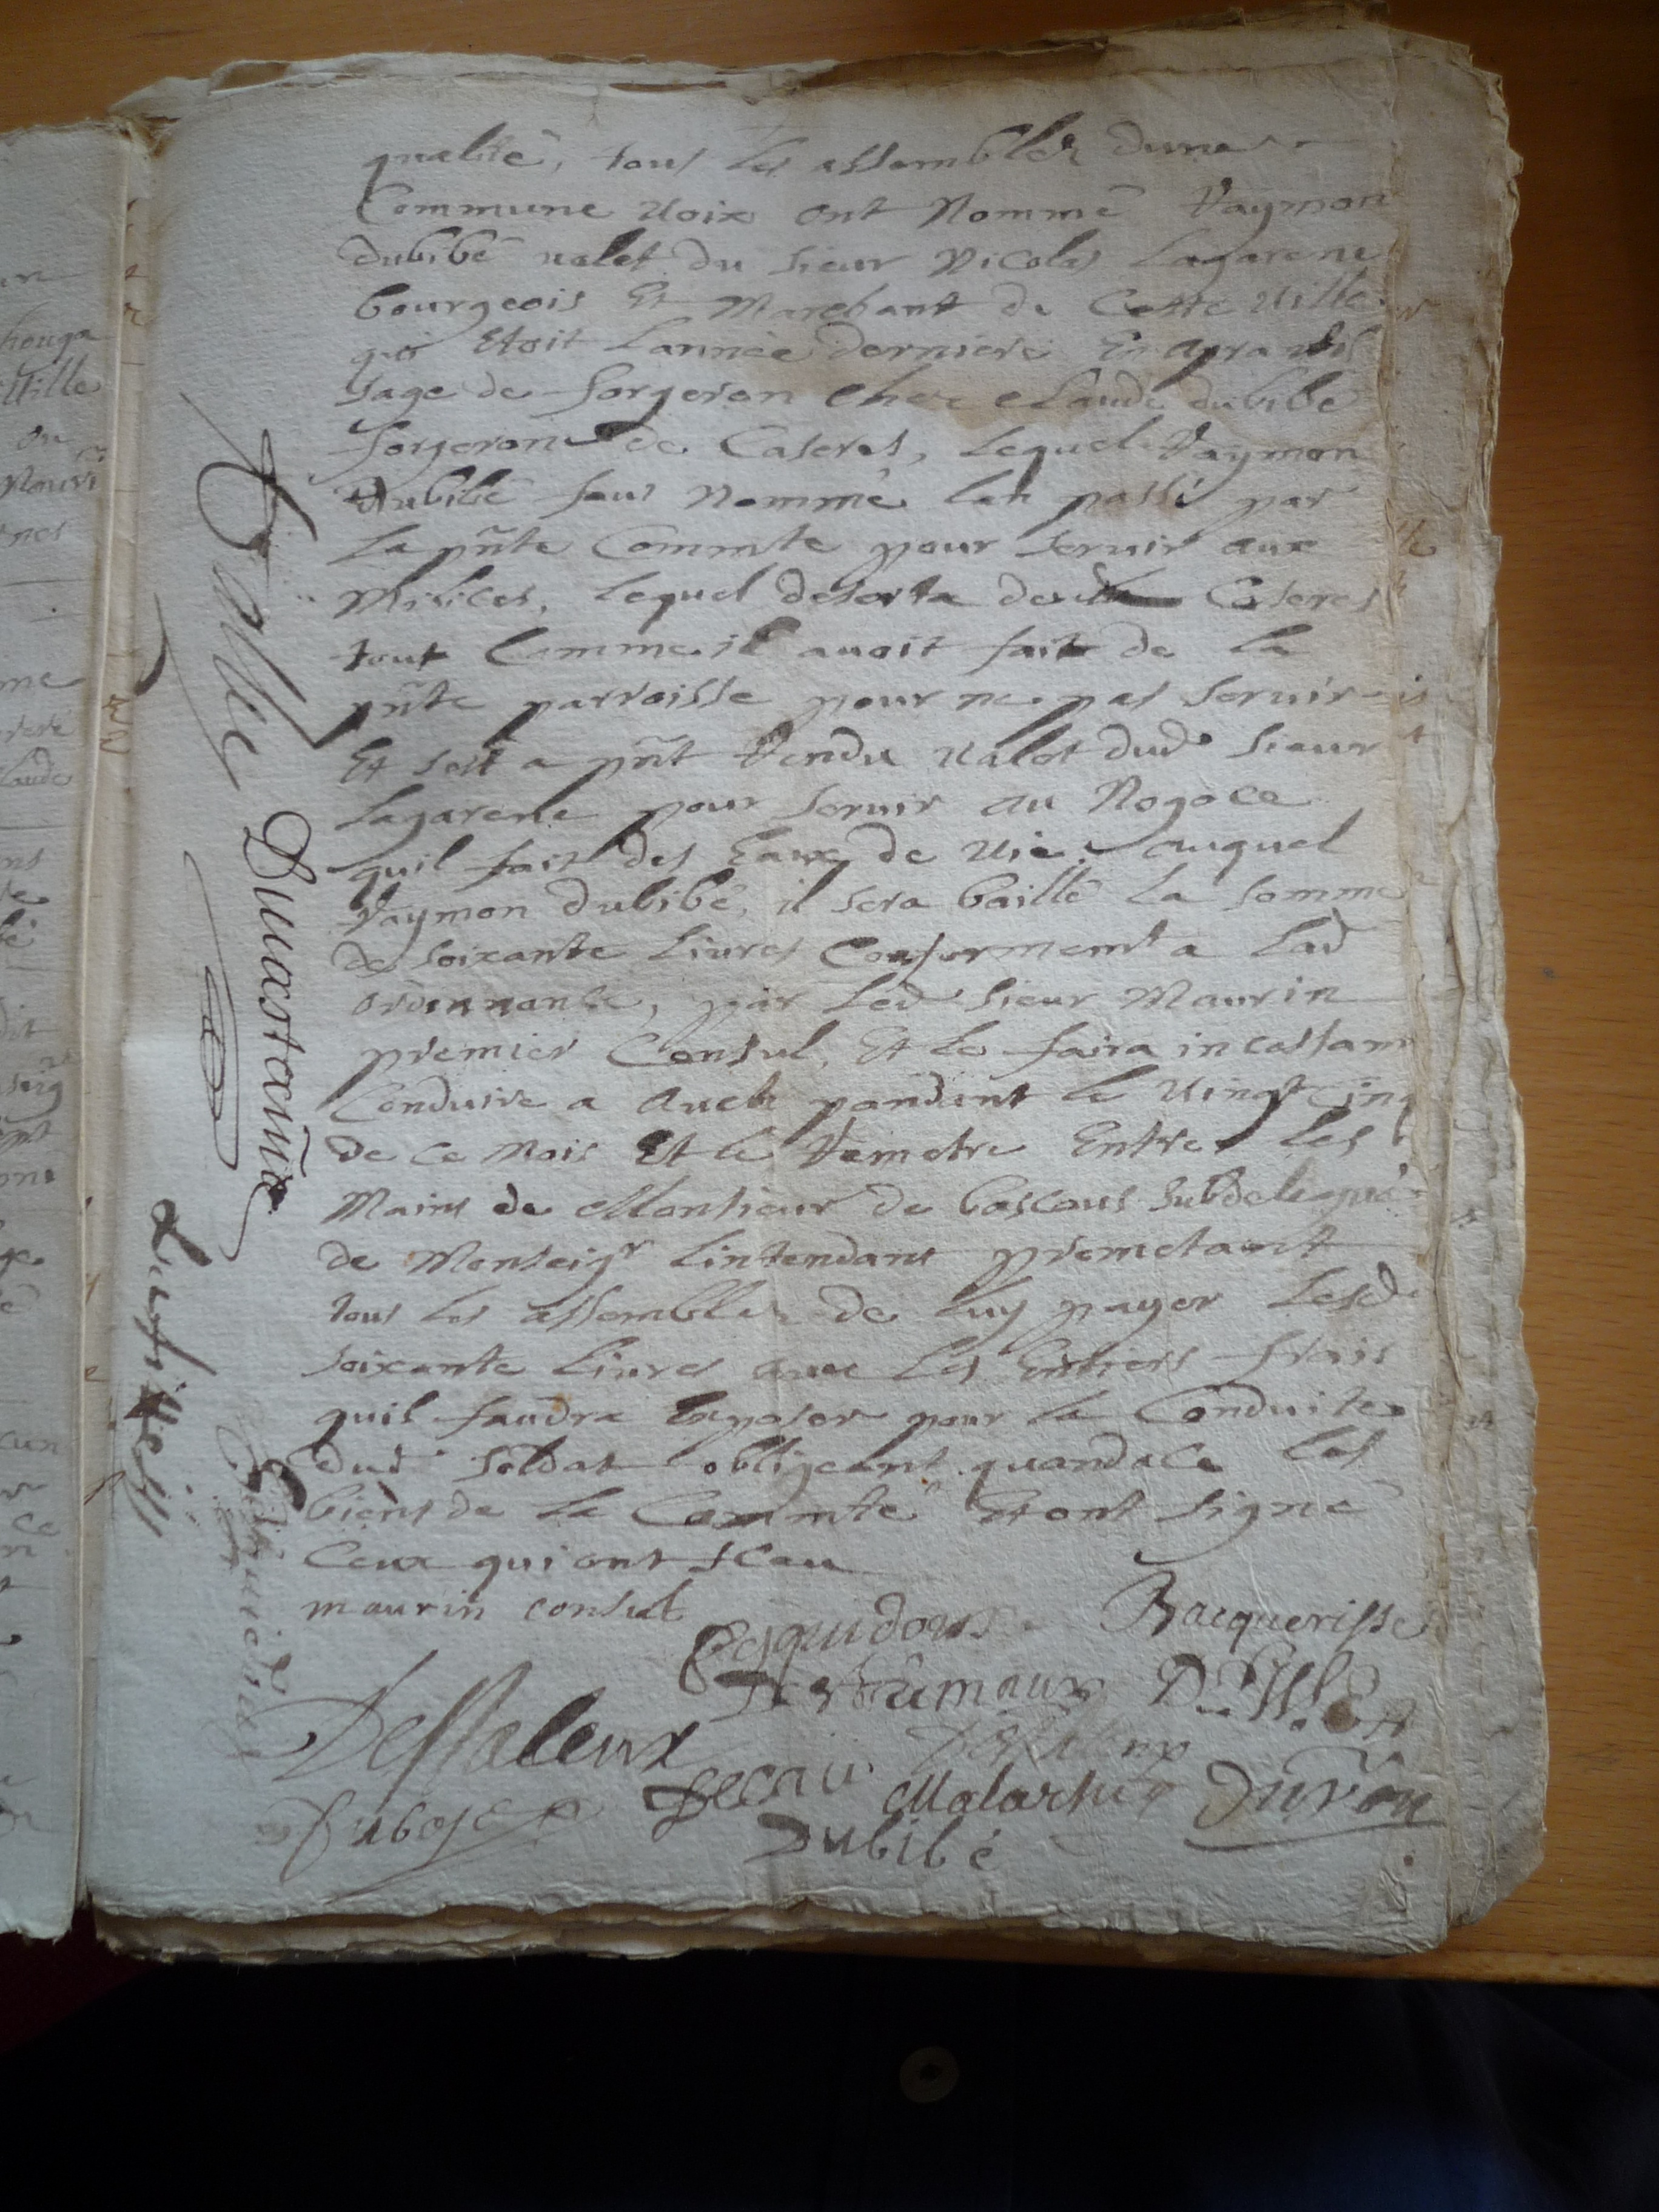 qualité, tous les assemblés dune
Commune voix ont Nommé Raymon
dubibé valet du sieur Nicolas Lagarene
bourgeois Et Marchant de Cette ville
qui Etoit Lannée derniere En aprantis
sage de forgeron chez Claude dubibé
forgeron de Caseres, Lequel Raymon
Dubibé feut Nommé lan passé par
la pñte Commte pour servir aux
Milices, Lequel deserta de Caseres
tout Comme il avoit fait de la
pñte parroisse pour ne pas servir
Et sest a pñt Rendu valet dud sieur
Lagarene pour servir au Negoce
quil fait des Eaux de vie, auquel
Raymon dubibé, il sera baillé la somme
de soixante Livres Conformemt a Lad
ordonnance, par led sieur Maurin
premier Consul, Et le faira incessam
Conduire a Auch pandant le vingt cinq
de ce mois Et le Remetre Entre les
Mains de Monsieur de bascous subdelegué
de Monseigr Lintendant prometant
tous les assemblés de luy payer Lesd
soixante Livres avec les Entiers frais
quil faudra Exposer pour la Conduite
dud soldat obligeant quandace les
biens de la Commte Et ont signé
Ceux qui ont sceu
maurin consul
Pesquidoux Bacquerisse
Destrâmaux
Dessaleux
Dubosc Decau Malartic Durou
Dubibé